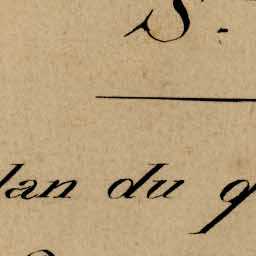 S.
lan du q